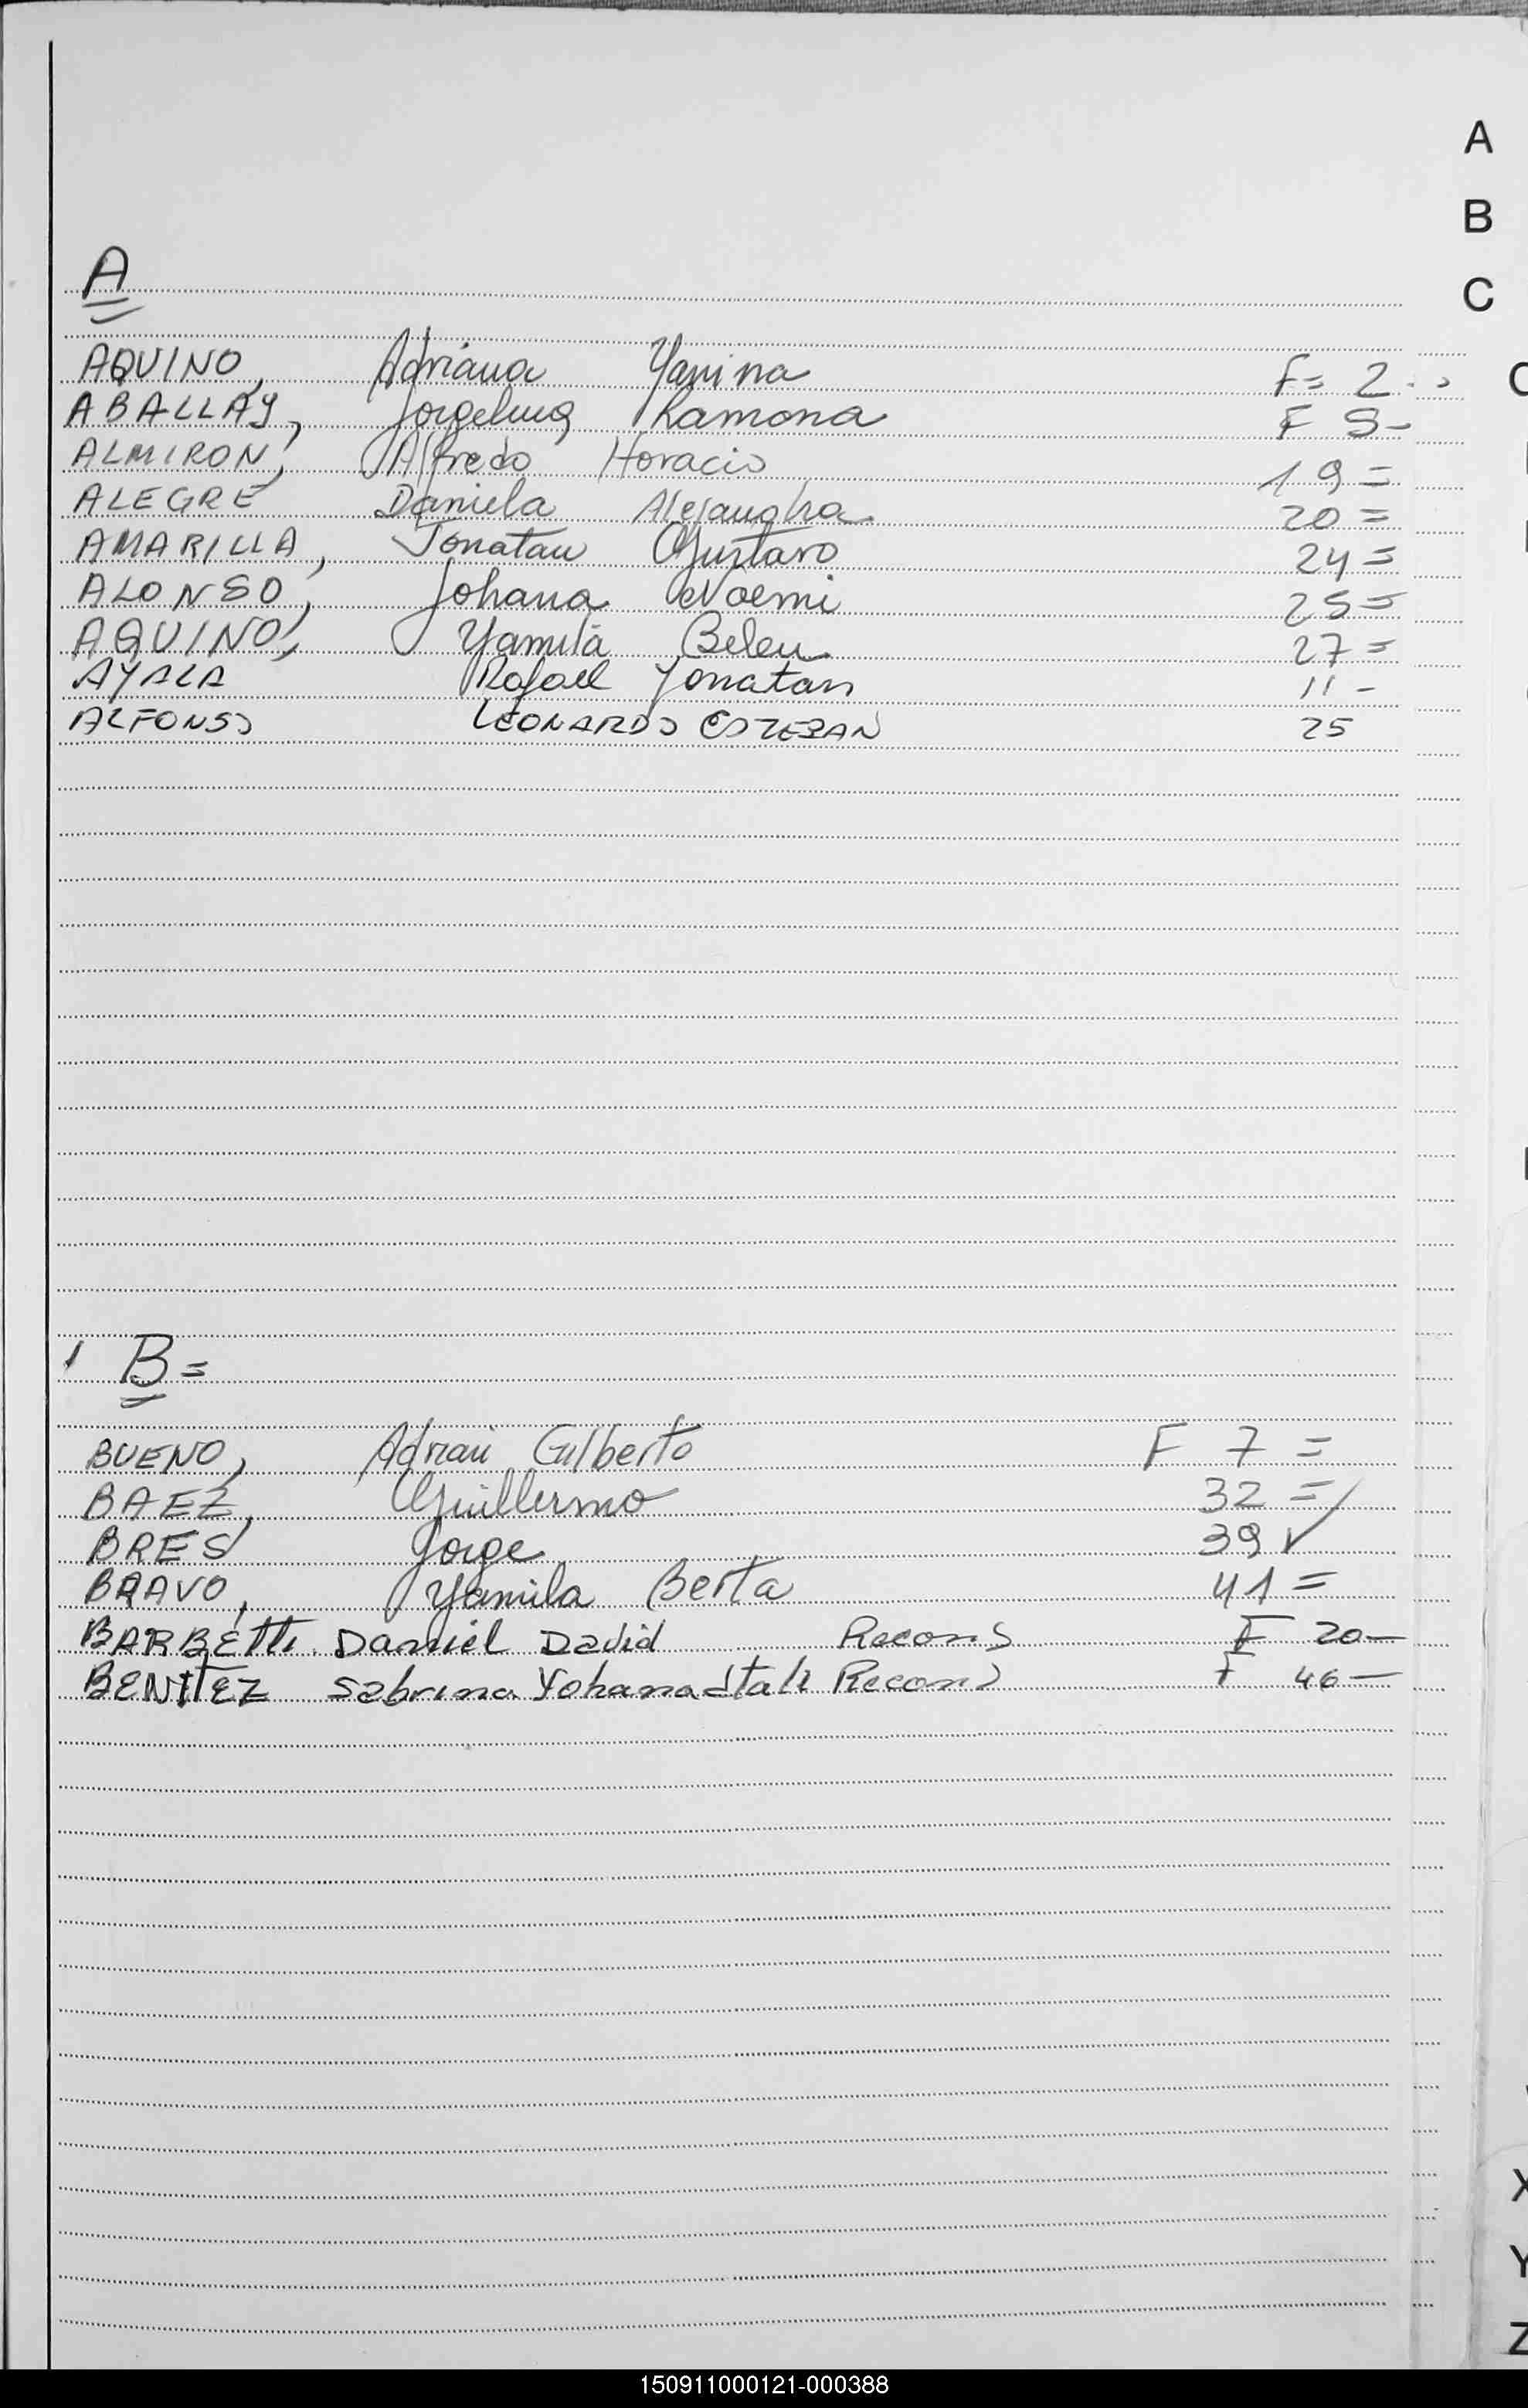 A
B
C
A
AQUINO, Adriana Yanina F= 2..
ABALLAY, Jorgelina Ramona F 5-
ALMIRON, Alfredo Horacio 19=
ALEGRE Daniela Alejandra 20=
AMARILLA, Jonatan Gustavo 24=
ALONSO, Johana Noemi 25=
AQUINO, Yamila Belen 27=
AYALA Rafael Yonatan 11-
ALFONSO LEONARDO ESTEBAN 25
B=
BUENO, Adrian Gilberto F 7=
BAEZ, Guillermo 32=
BRES Jorge 39✓
BRAVO, Yamila Berta 41=
BARBEtti Daniel David Recons F 20-
BENITEZ Sabrina Yohana Recons F 46-
X
Y
Z
150911000121-000388